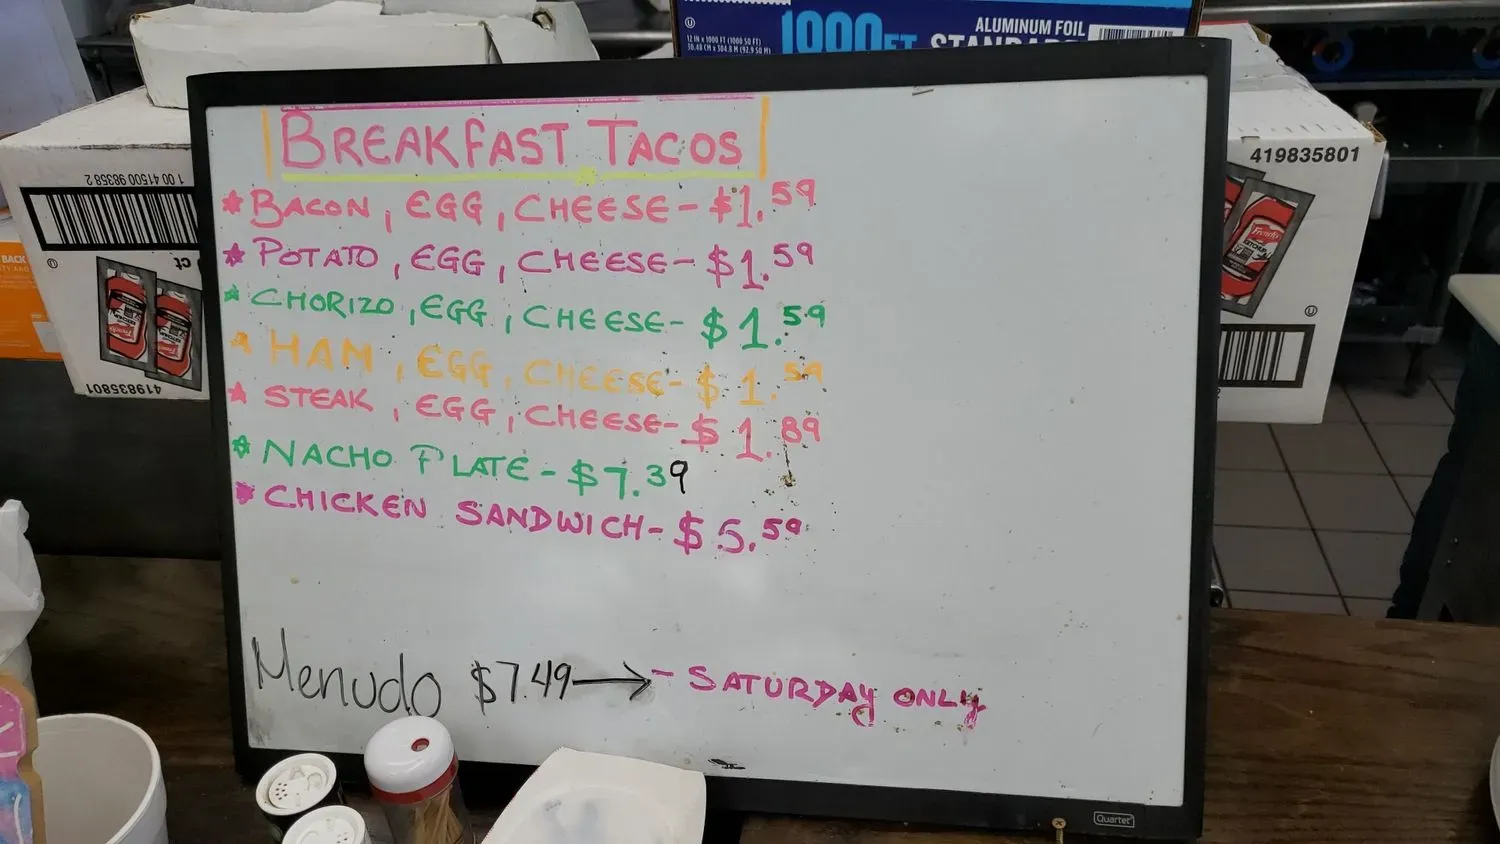 1000 FT
ALUMINUM FOIL
12 IN x 1000 FT (1000 SQ FT)
30.48 CM x 304.8 M (92.9 SQ M)
BREAKFAST TACOS
* BACON, EGG, CHEESE - $1.59
* POTATO, EGG, CHEESE - $1.59
* CHORIZO, EGG, CHEESE - $1.59
* HAM, EGG, CHEESE - $1.59
* STEAK, EGG, CHEESE - $1.89
* NACHO PLATE - $7.39
* CHICKEN SANDWICH - $5.59
Menudo $7.49 → - SATURDAY ONLY
Quartet
1 00 41500 98358 2
419835801
419835801
BACK